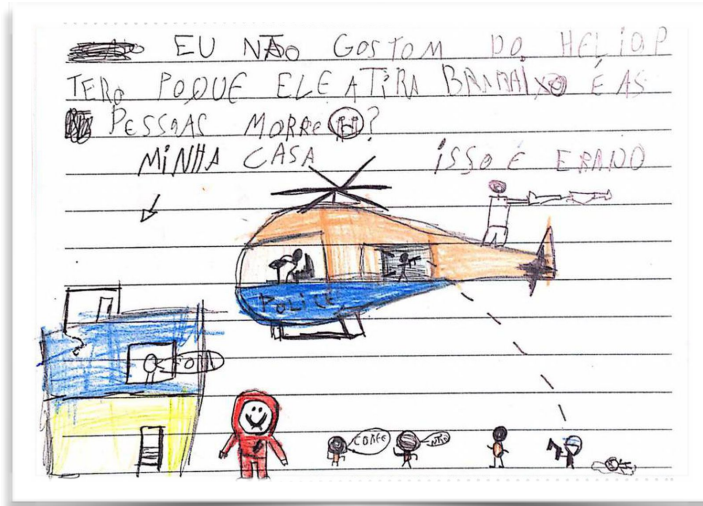 EU NÃO GOSTOM DO HELIOP
TERO POQUE ELE ATIRA BAIMAIXO É AS
PESSOAS MORRE?
MINHA CASA ISSO É ERADO
POLICE
CORRE
NÃO